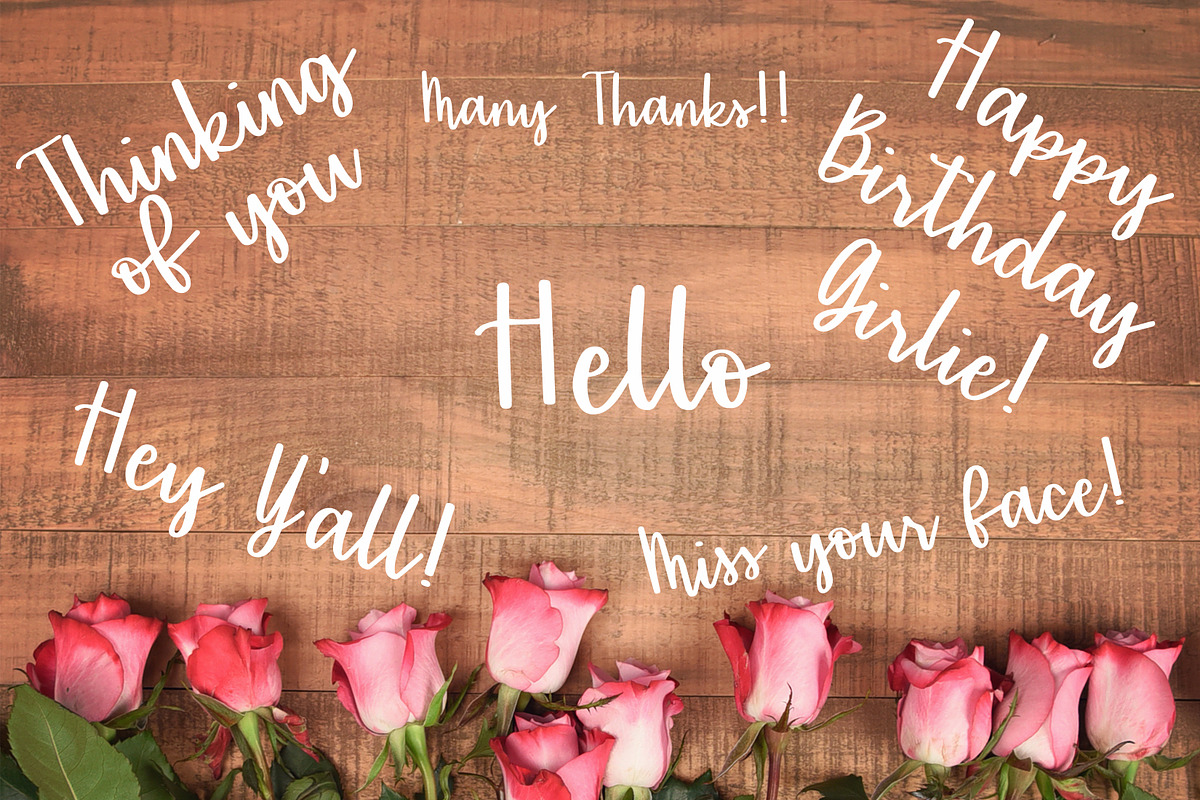 Thinking
of you
Many Thanks!!
Happy
Birthday
Girlie!
Hello
Hey Y'all!
Miss your face!